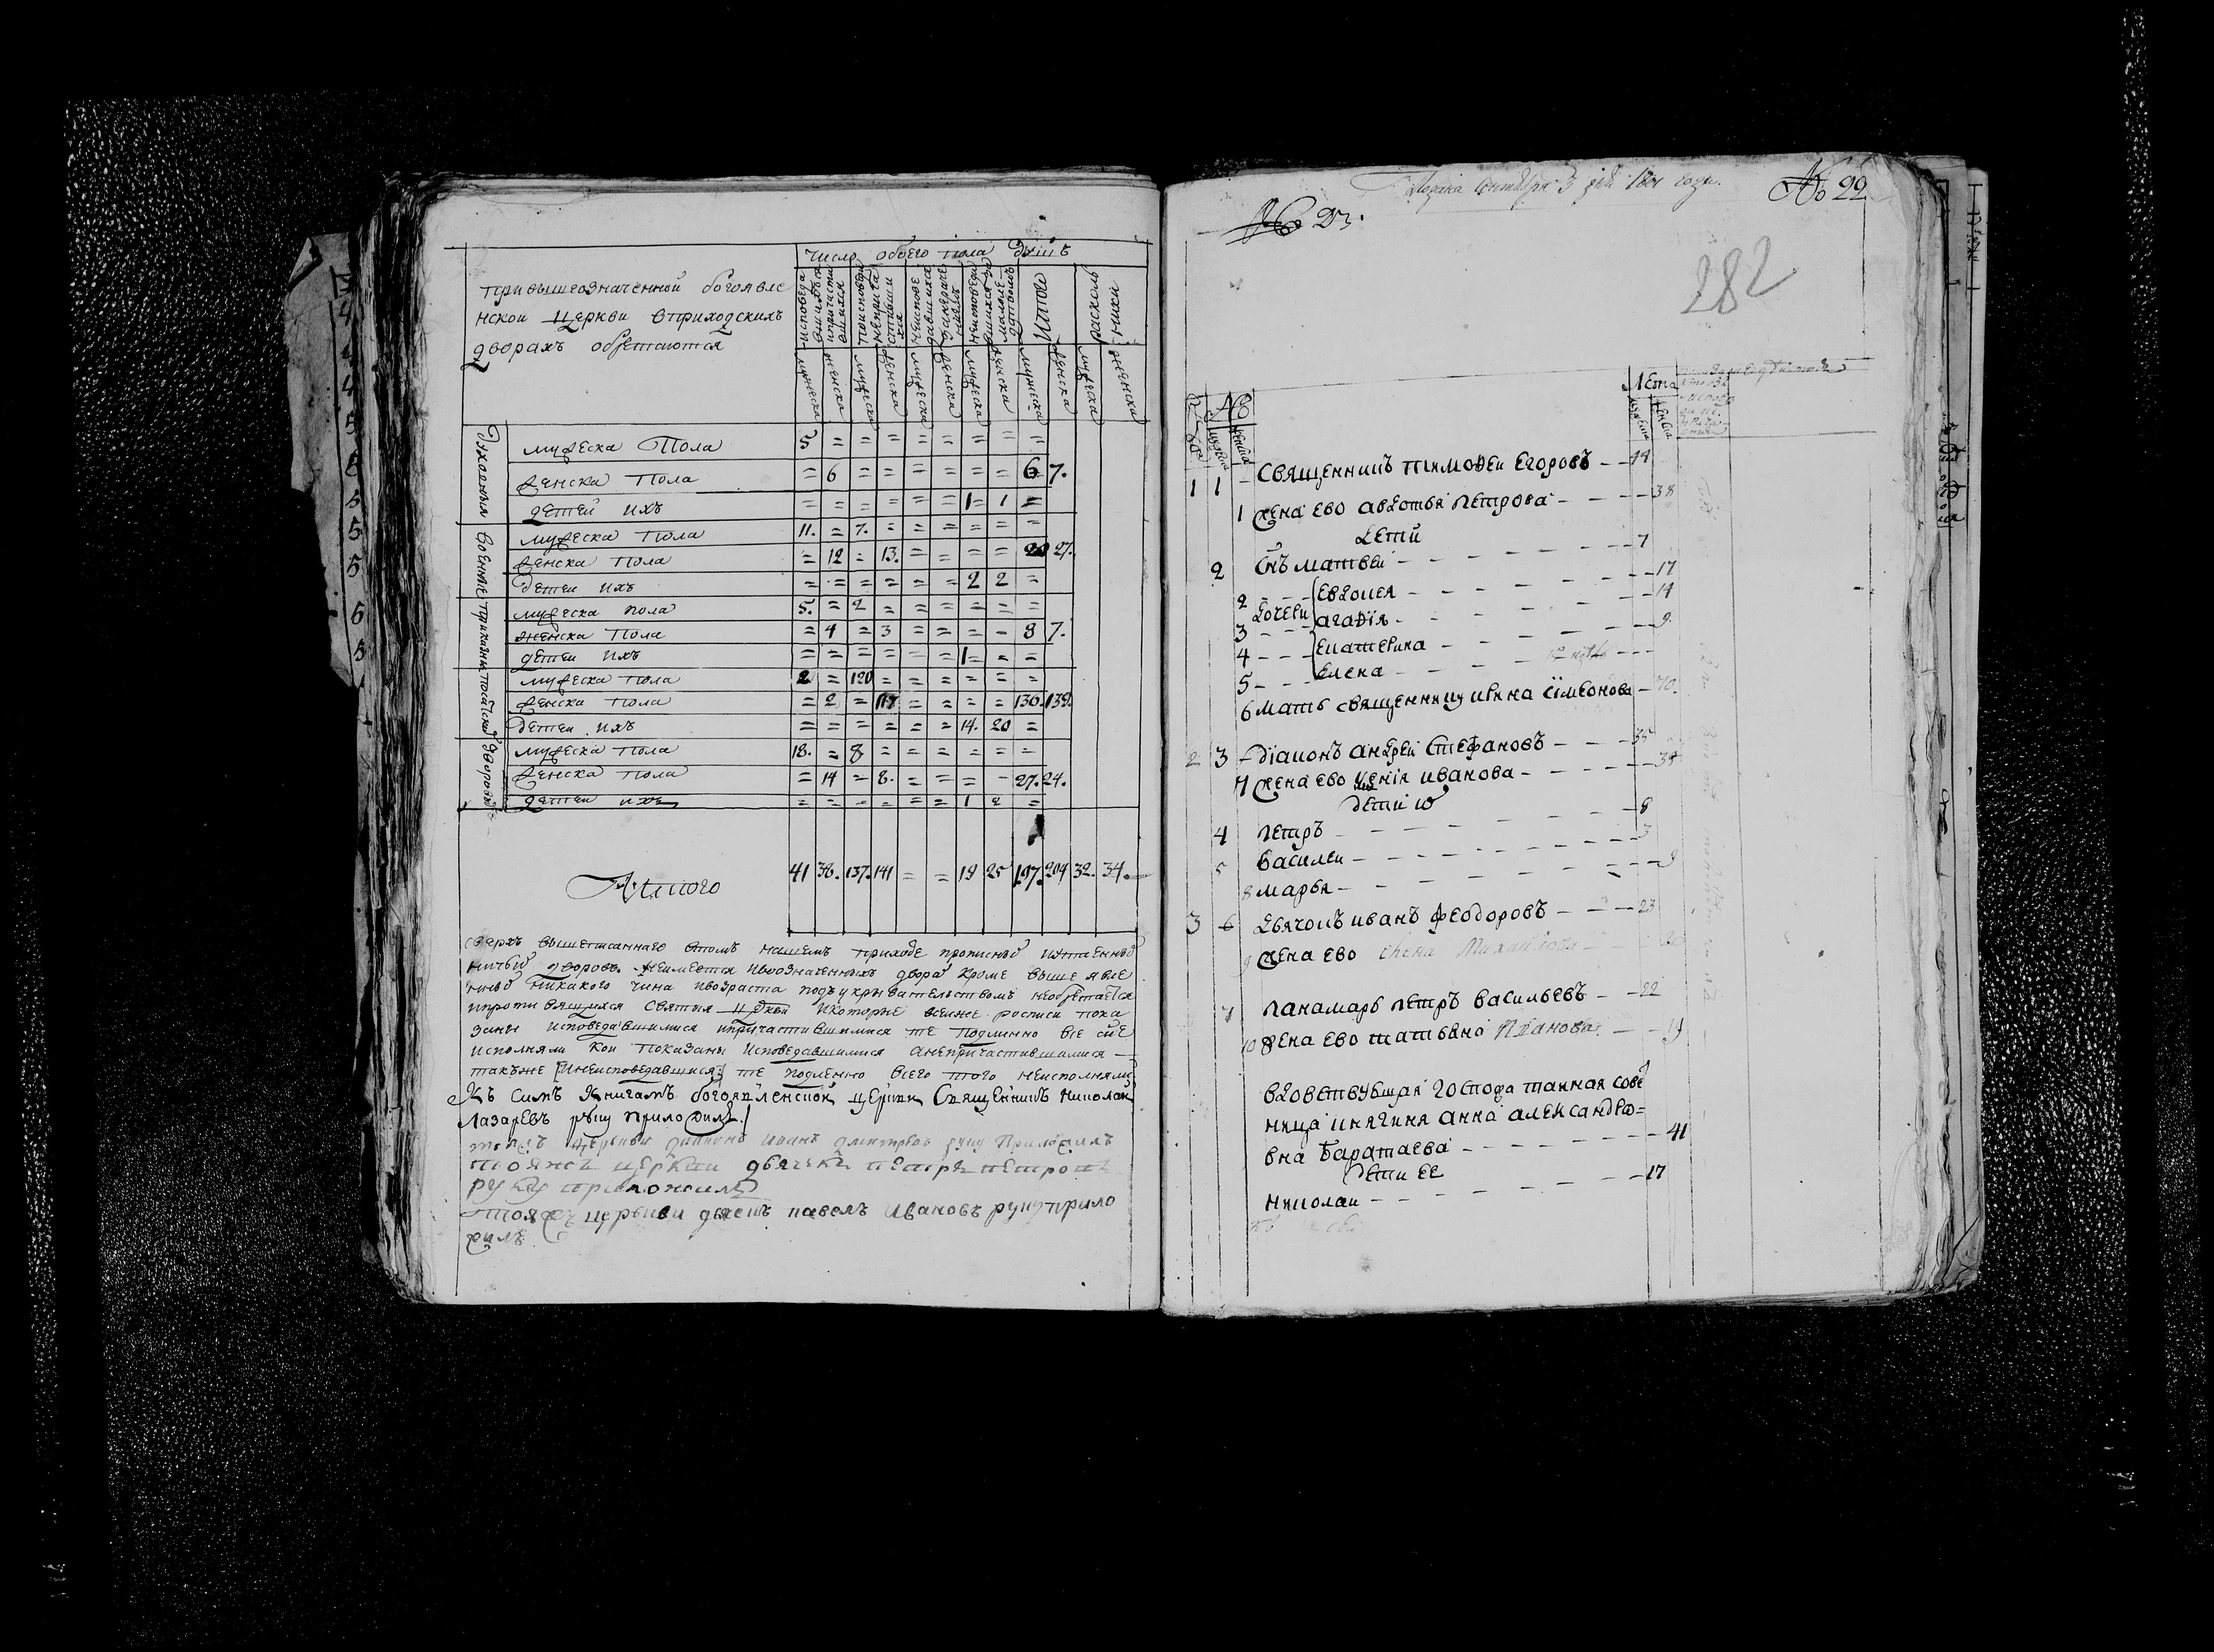 число обоего пола душъ
при вышеозначенной богоявле
нской церкви вприходскихъ
дворахъ обретаются
Итого
расколь
ники
мужеска
женска
мужеска
женска
мужеска
женска
мужеска
женска
мужеска
женска
мужеска
женска
Духовныя
мужеска Пола 5 = = = = = = = =
женска Пола = 6 = = = = = = 6 7.
детей ихъ = = = = = = 1 = 1 =
военные
мужеска Пола 11. = 7. = = = = = =
женска Пола = 12 = 13. = = = = 20 27.
детеи ихъ = = = = = = 2 2 =
приказны
мужеска пола 5. = 2 = = = = = =
женска Пола = 4 = 3 = = = = 8 7.
детеи ихъ = = = = = = 1 = = =
посатской
мужеска пола 2 = 120 = = = = = =
женска пола = 2 = 117 = = = = 136. 139.
детеи ихъ = = = = = = 14. 20 =
дворовы
мужеска пола 18. = 8 = = = = = =
женска пола = 14 = 8. = = = = 27. 24.
детеи ихъ = = = = = = 1 2 =
Итого 41 38. 137. 141 = = 19 25 197. 204 32. 34.
сверхъ вышеписаннаго втомъ нашемъ приходе прописныхъ
дворовъ неимеется ивозначенныхъ дворахъ кроме выше явле
никакого чина ивозраста подъ укрывательствомъ необретается
ипротивящихся святыя цркви икоторые всеиже росписи пока
заны исповедавшимися ипричастившимися те подлинно все сие
исполняли кои показаны исповедавшимися анепричастившимися
такъже инеисповедавшися те подленно всего того неисполняли
Къ симъ книгамъ богоявленской церкви Священникъ николаи
Лазаревъ руку приложилъ
тоежъ церькви диаконъ иванъ дмитревъ руку приложилъ
тояжъ церкви дьячекъ петръ петровъ
руку приложилъ
тояжъ церькви дьячекъ павелъ Ивановъ руку прило
жилъ
Подана Сентября 3 дня 1801 года.
№ 22
№ 23.
282
Лета
мужеска
женска
1 1 Священникъ тимофеи Егоровъ 44
1 жена ево авдотья петрова 38
дети
2 снъ матвеи 7
2 Евдокея 17
дочери
3 агафiя 14
4 екатерина 9
5 елена
6 мать священнику ирина сiмеонова 70.
2 3 дiаконъ андреи стефановъ 35
7 жена ево ксенiя иванова 34
дети ихъ
4 петръ 8
5 василеи 3
8 марья 9
3 6 дьячокъ иванъ феодоровъ 23
9 жена ево елена Михаилова 20
7 панамарь петръ васильевъ 22
10 жена ево татьяна Иванова 19
вдовствующая господа танная сове
ница княгиня анна александро=
вна Баратаева 41
дети ее
николаи 17